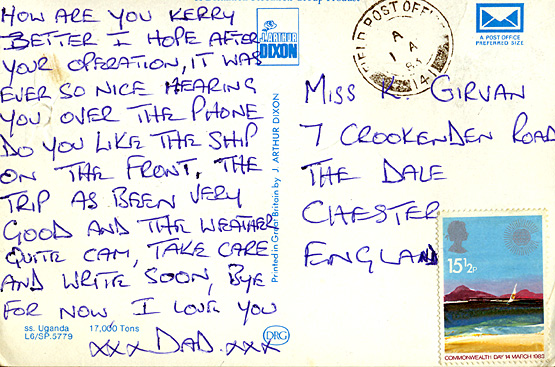 HOW ARE YOU KERRY
BETTER I HOPE AFTER
YOUR OPERATION, IT WAS
EVER SO NICE HEARING
YOU OVER THE PHONE
DO YOU LIKE THE SHIP
ON THE FRONT, THE
TRIP AS BEEN VERY
GOOD AND THE WEATHER
QUITE CAM, TAKE CARE
AND WRITE SOON, BYE
FOR NOW I LOVE YOU
xxx DAD. xxx
ss. Uganda 17,000 Tons
L6/SP.5779
DRG
J. ARTHUR
DIXON
Printed in Great Britain by J. ARTHUR DIXON
FIELD POST OFFICE
A
1 A
14
A POST OFFICE
PREFERRED SIZE
MISS K GIRVAN
7 CROOKENDEN ROAD
THE DALE
CHESTER
ENGLAND
15½p
COMMONWEALTH DAY 14 MARCH 1983